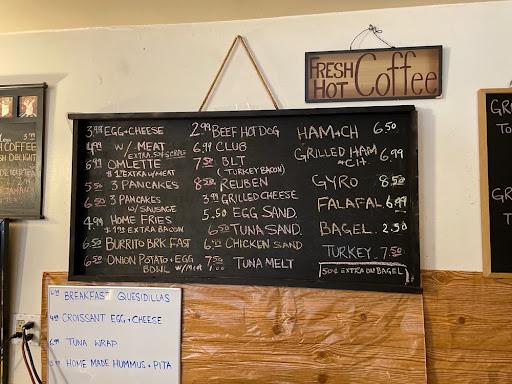 FRESH HOT Coffee
3.99 EGG+CHEESE
4.99 W/ MEAT
EXTRA
6.99 OMLETTE
$1 EXTRA W/MEAT
5.50 3 PANCAKES
6.50 3 PANCAKES
W/ SAUSAGE
4.99 HOME FRIES
EXTRA BACON
6.50 BURRITO BRKFAST
6.50 ONION POTATO+EGG
BOWL
2.99 BEEF HOT DOG
6.99 CLUB
7.50 BLT
(TURKEY BACON)
8.50 REUBEN
3.99 GRILLED CHEESE
5.50 EGG SAND.
6.50 TUNA SAND.
CHICKEN SAND
7.50 TUNA MELT
HAM+CH 6.50
GRILLED HAM 6.99
+CH
GYRO 8.50
FALAFAL 6.99
BAGEL 2.50
TURKEY 7.50
50¢ EXTRA ON BAGEL
BREAKFAST QUESIDILLAS
CROISSANT EGG+CHEESE
TUNA WRAP
HOME MADE HUMMUS+PITA
COFFEE
DELIGHT
GR
TO
GR